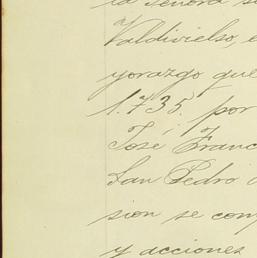 la señora
Valdivielso,
yorazgo que
1.735. por
José Franc
San Pedro
sion se com
y acciones